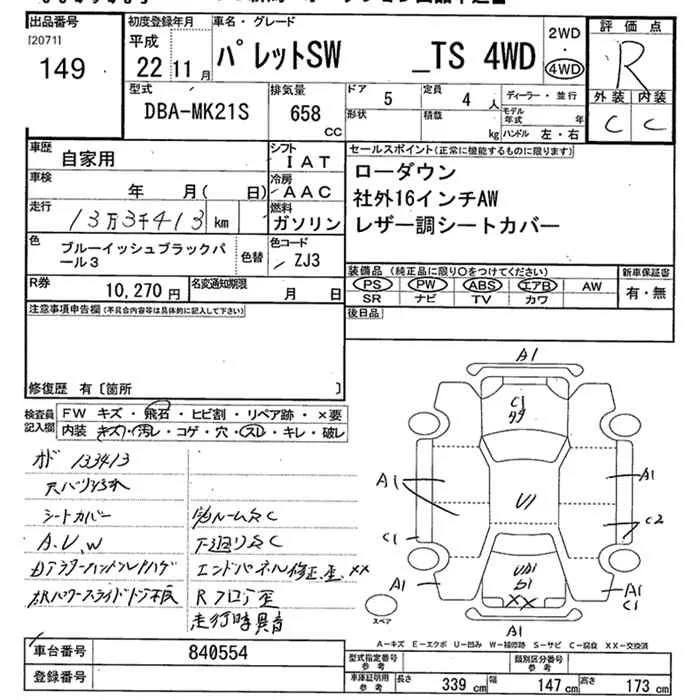 出品番号
[2071]
149
初度登録年月
平成
22年11月
車名・グレード
パレットSW _TS 4WD
2WD
・
4WD
評価点
R
外装 内装
C C
型式
DBA-MK21S
排気量
658
CC
ドア 5
定員 4人
形状
積載 kg
ディーラー・並行
モデル年式 年
ハンドル 左・右
車歴
自家用
シフト
IAT
車検
年 月( 日)
冷房
AAC
走行
13万3千413 km
燃料
ガソリン
色
ブルーイッシュブラックパール3
色替
色コード
ZJ3
R券
10,270円
名変通知期限
月 日
セールスポイント(正常に機能するものに限ります)
ローダウン
社外16インチAW
レザー調シートカバー
装備品 (純正品に限り○をつけてください)
PS PW ABS エアB AW
SR ナビ TV カワ
新車保証書
有・無
後日品
注意事項申告欄(不具合内容等は具体的に記入して下さい)
修復歴 有〔箇所 〕
検査員記入欄
FW キズ・飛石・ヒビ割・リペア跡・×要
内装 キズ・汚レ・コゲ・穴・スレ・キレ・破レ
133413
シートカバー
A.V.W
下廻りサC
エンドパネル修正、歪、××
Rフロア歪
走行時異音
A1
C1
A1
A1
U1
C2
C1
A1
A1
C1
××
A1
スペア
A-キズ E-エクボ U-凹み W-補修跡 S-サビ C-腐食 XX-交換済
車台番号
840554
登録番号
型式指定番号
参考
類別区分番号
参考
車庫証明用
参考
長さ 339cm
幅 147cm
高さ 173cm